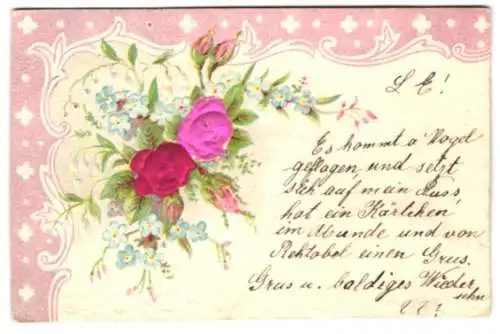 L E!
Es kommt a' Vogel
geflogen und setzt
sich auf mein Fuss
hat ein Kärtchen
im Munde und von
Rehtobel einen Grus.
Grus u. baldiges Wieder
sehn